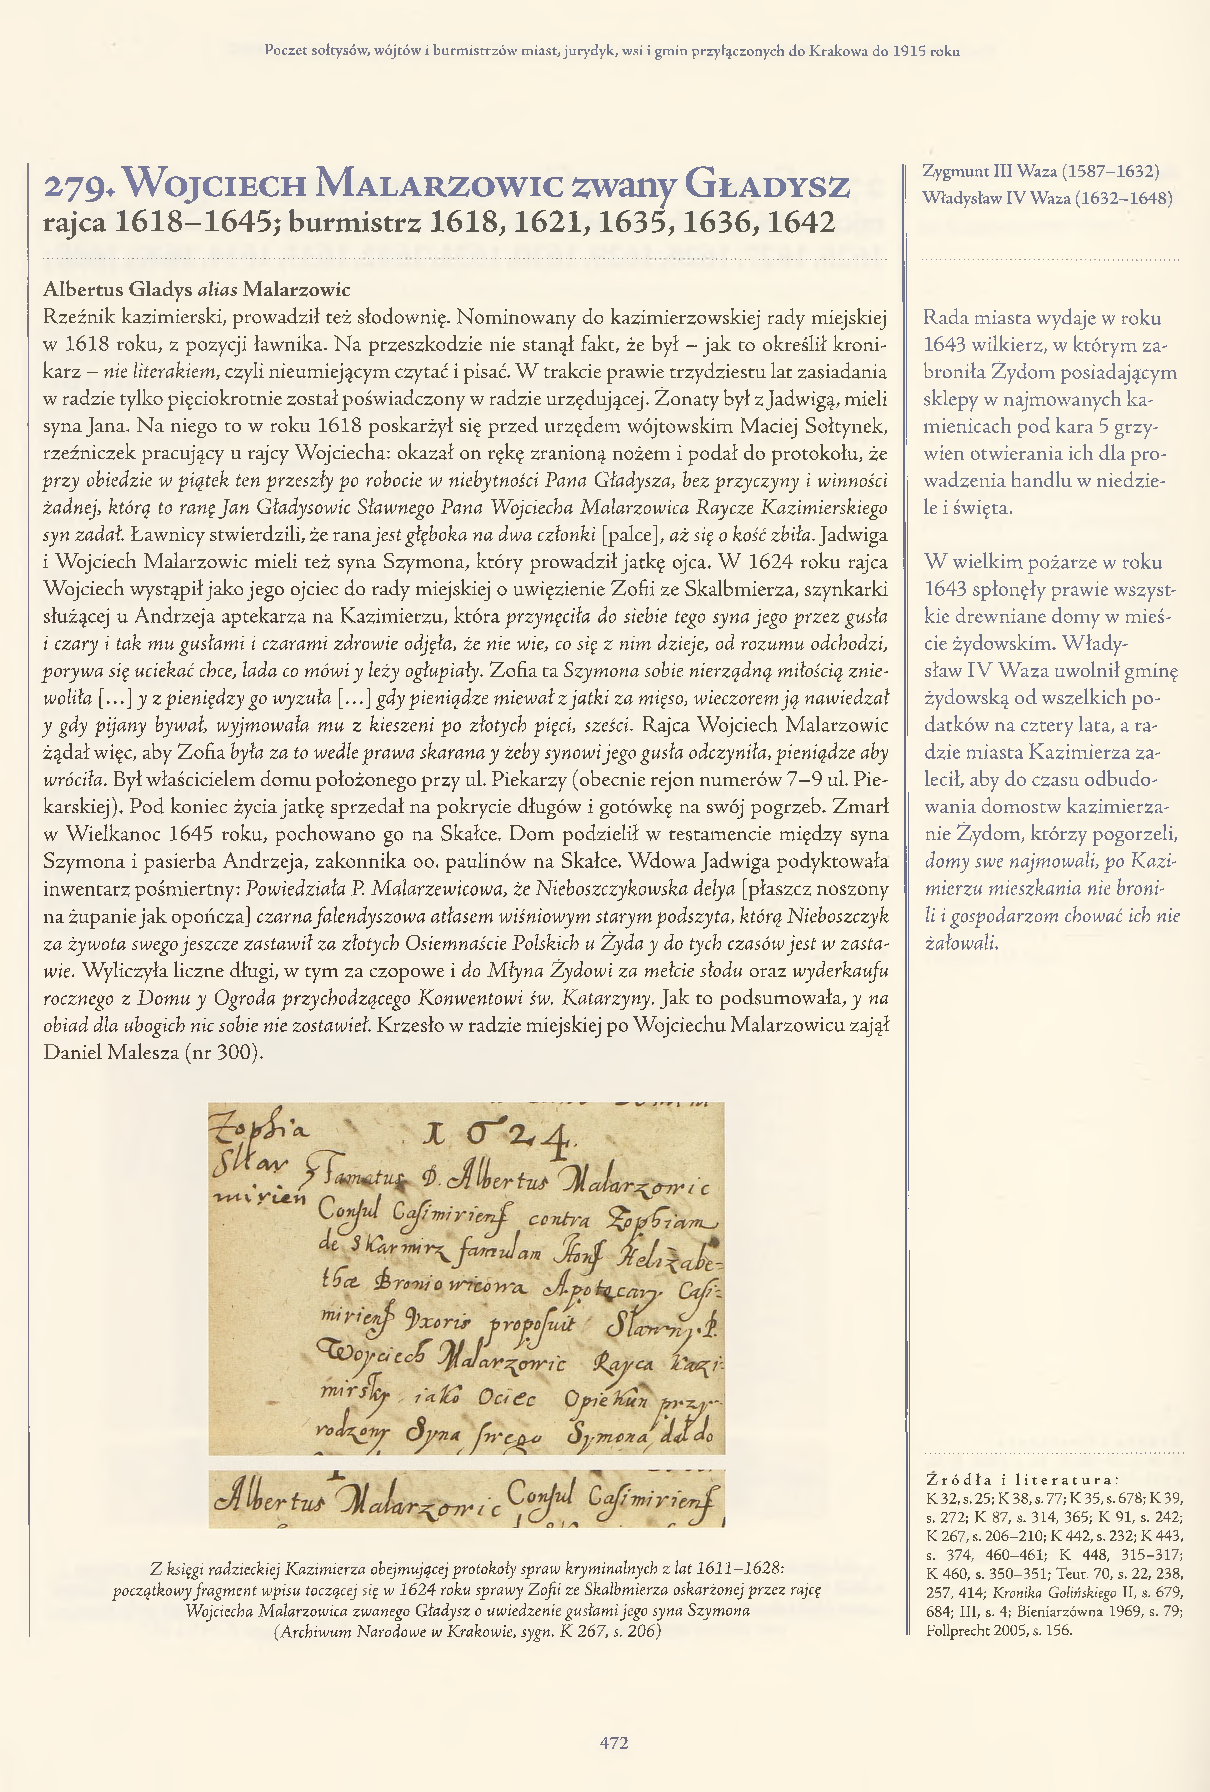 Poczet sołtysów, wójtów i burmistrzów miast, jurydyk, wsi i gmin przyłączonych do Krakowa do 1915 roku
279. Wojciech Malarzowic zwany Gładysz
rajca 1618–1645; burmistrz 1618, 1621, 1635, 1636, 1642
Albertus Gladys alias Malarzowic
Rzeźnik kazimierski, prowadził też słodownię. Nominowany do kazimierzowskiej rady miejskiej
w 1618 roku, z pozycji ławnika. Na przeszkodzie nie stanął fakt, że był – jak to określił kroni-
karz – nie literakiem, czyli nieumiejącym czytać i pisać. W trakcie prawie trzydziestu lat zasiadania
w radzie tylko pięciokrotnie został poświadczony w radzie urzędującej. Żonaty był z Jadwigą, mieli
syna Jana. Na niego to w roku 1618 poskarżył się przed urzędem wójtowskim Maciej Sołtynek,
rzeźniczek pracujący u rajcy Wojciecha: okazał on rękę zranioną nożem i podał do protokołu, że
przy obiedzie w piątek ten przeszły po robocie w niebytności Pana Gładysza, bez przyczyny i winności
żadnej, którą to ranę Jan Gładysowic Sławnego Pana Wojciecha Malarzowica Raycze Kazimierskiego
syn zadał. Ławnicy stwierdzili, że rana jest głęboka na dwa członki [palce], aż się o kość zbiła. Jadwiga
i Wojciech Malarzowic mieli też syna Szymona, który prowadził jatkę ojca. W 1624 roku rajca
Wojciech wystąpił jako jego ojciec do rady miejskiej o uwięzienie Zofii ze Skalbmierza, szynkarki
służącej u Andrzeja aptekarza na Kazimierzu, która przynęciła do siebie tego syna jego przez gusła
i czary i tak mu gusłami i czarami zdrowie odjęła, że nie wie, co się z nim dzieje, od rozumu odchodzi,
porywa się uciekać chce, lada co mówi y leży ogłupiały. Zofia ta Szymona sobie nierządną miłością znie-
woliła [...] y z pieniędzy go wyzuła [...] gdy pieniądze miewał z jatki za mięso, wieczorem ją nawiedzał
y gdy pijany bywał, wyjmowała mu z kieszeni po złotych pięci, sześci. Rajca Wojciech Malarzowic
żądał więc, aby Zofia była za to wedle prawa skarana y żeby synowi jego gusła odczyniła, pieniądze aby
wróciła. Był właścicielem domu położonego przy ul. Piekarzy (obecnie rejon numerów 7–9 ul. Pie-
karskiej). Pod koniec życia jatkę sprzedał na pokrycie długów i gotówkę na swój pogrzeb. Zmarł
w Wielkanoc 1645 roku, pochowano go na Skałce. Dom podzielił w testamencie między syna
Szymona i pasierba Andrzeja, zakonnika oo. paulinów na Skałce. Wdowa Jadwiga podyktowała
inwentarz pośmiertny: Powiedziała P. Malarzewicowa, że Nieboszczykowska delya [płaszcz noszony
na żupanie jak opończa] czarna falendyszowa atłasem wiśniowym starym podszyta, którą Nieboszczyk
za żywota swego jeszcze zastawił za złotych Osiemnaście Polskich u Żyda y do tych czasów jest w zasta-
wie. Wyliczyła liczne długi, w tym za czopowe i do Młyna Żydowi za mełcie słodu oraz wyderkaufu
rocznego z Domu y Ogroda przychodzącego Konwentowi św. Katarzyny. Jak to podsumowała, y na
obiad dla ubogich nic sobie nie zostawieł. Krzesło w radzie miejskiej po Wojciechu Malarzowicu zajął
Daniel Malesza (nr 300).
Zophia
Skar
mirien
1624.
Famatus D. Albertus Malarzowic
Consul Casimiriens contra Zophiam
de Skarmirz famulam Hons Helizabe-
thae Broniowicowa Apotecary Casi-
miriens Vxoris proposuit Slawny P.
Woyciech Malarzowic Rayca Kazi-
mirsky iako Ociec Opiekun przy-
rodzony Syna swego Symona dał do
Albertus Malarzowic Consul Casimiriens
Z księgi radzieckiej Kazimierza obejmującej protokoły spraw kryminalnych z lat 1611–1628:
początkowy fragment wpisu toczącej się w 1624 roku sprawy Zofii ze Skalbmierza oskarżonej przez rajcę
Wojciecha Malarzowica zwanego Gładysz o uwiedzenie gusłami jego syna Szymona
(Archiwum Narodowe w Krakowie, sygn. K 267, s. 206)
Zygmunt III Waza (1587–1632)
Władysław IV Waza (1632–1648)
Rada miasta wydaje w roku
1643 wilkierz, w którym za-
broniła Żydom posiadającym
sklepy w najmowanych ka-
mienicach pod kara 5 grzy-
wien otwierania ich dla pro-
wadzenia handlu w niedzie-
le i święta.
W wielkim pożarze w roku
1643 spłonęły prawie wszyst-
kie drewniane domy w mieś-
cie żydowskim. Włady-
sław IV Waza uwolnił gminę
żydowską od wszelkich po-
datków na cztery lata, a ra-
dzie miasta Kazimierza za-
lecił, aby do czasu odbudo-
wania domostw kazimierza-
nie Żydom, którzy pogorzeli,
domy swe najmowali, po Kazi-
mierzu mieszkania nie broni-
li i gospodarzom chować ich nie
żałowali.
Źródła i literatura:
K 32, s. 25; K 38, s. 77; K 35, s. 678; K 39,
s. 272; K 87, s. 314, 365; K 91, s. 242;
K 267, s. 206–210; K 442, s. 232; K 443,
s. 374, 460–461; K 448, 315–317;
K 460, s. 350–351; Teut. 70, s. 22, 238,
257, 414; Kronika Golińskiego II, s. 679,
684; III, s. 4; Bieniarzówna 1969, s. 79;
Follprecht 2005, s. 156.
472